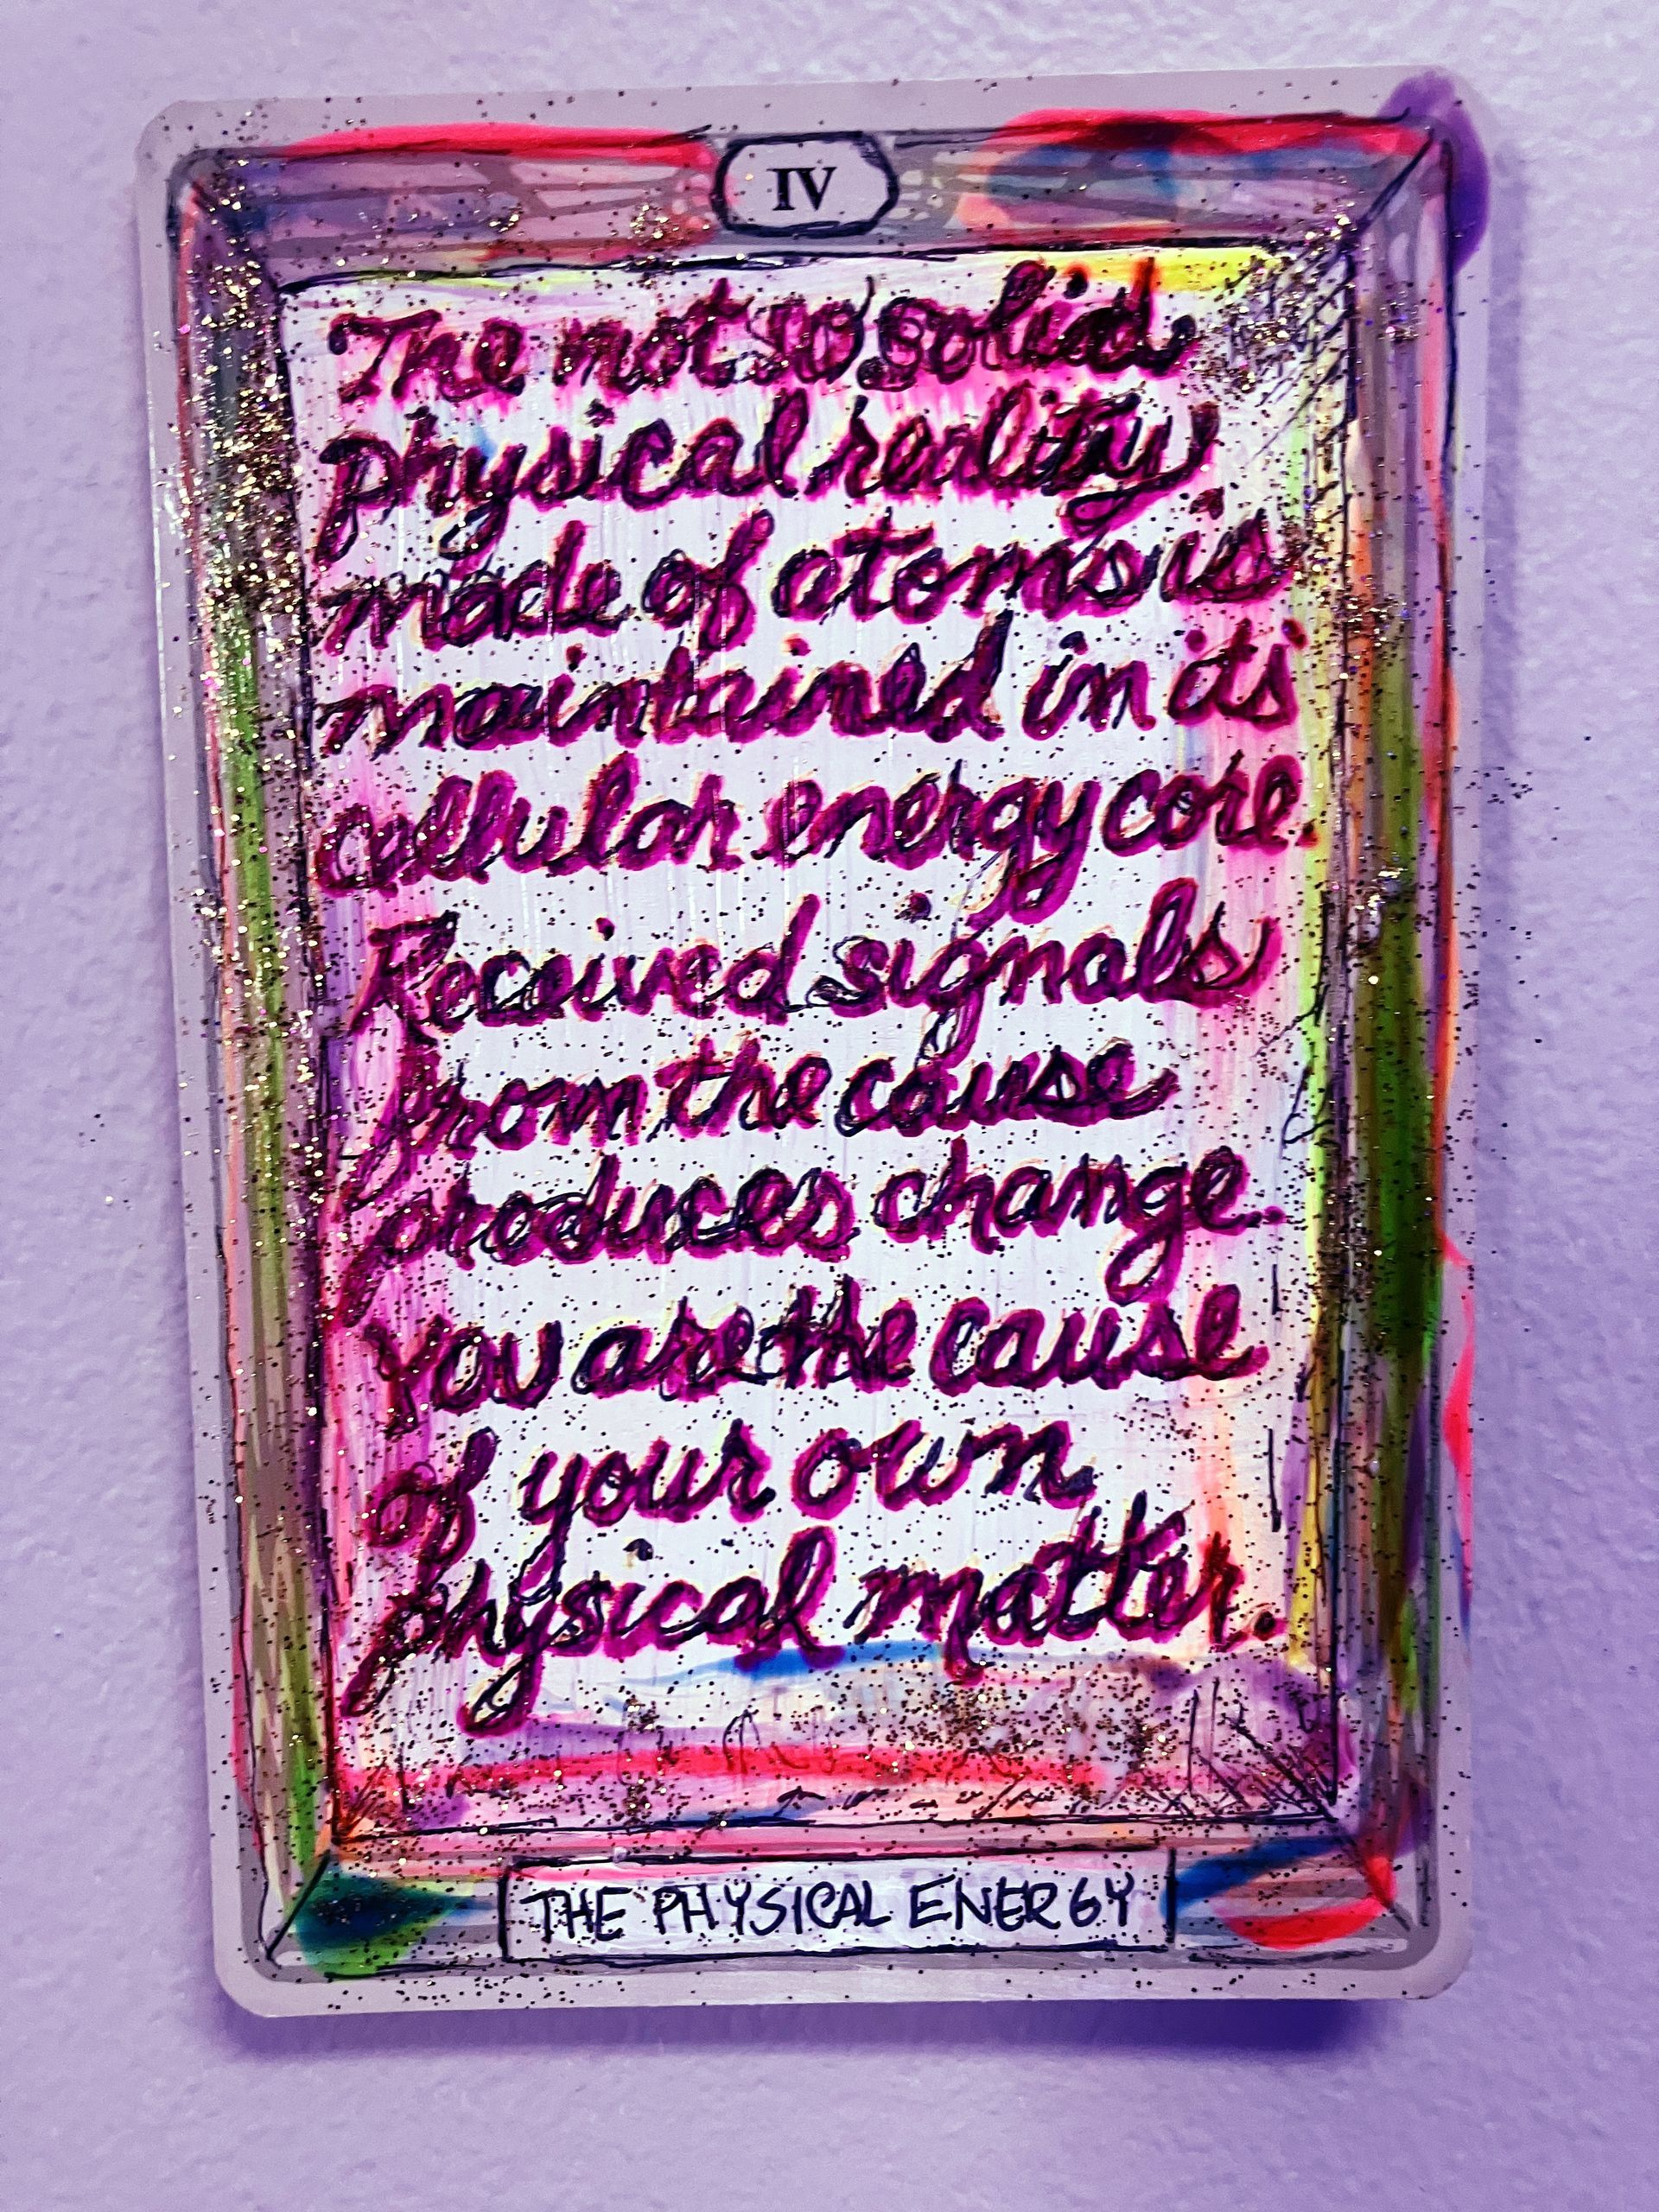 IV
The not so solid
physical reality
made of atoms is
maintained in its
cellular energy core.
Received signals
from the cause
produces change.
You are the cause
of your own
physical matter.
THE PHYSICAL ENERGY